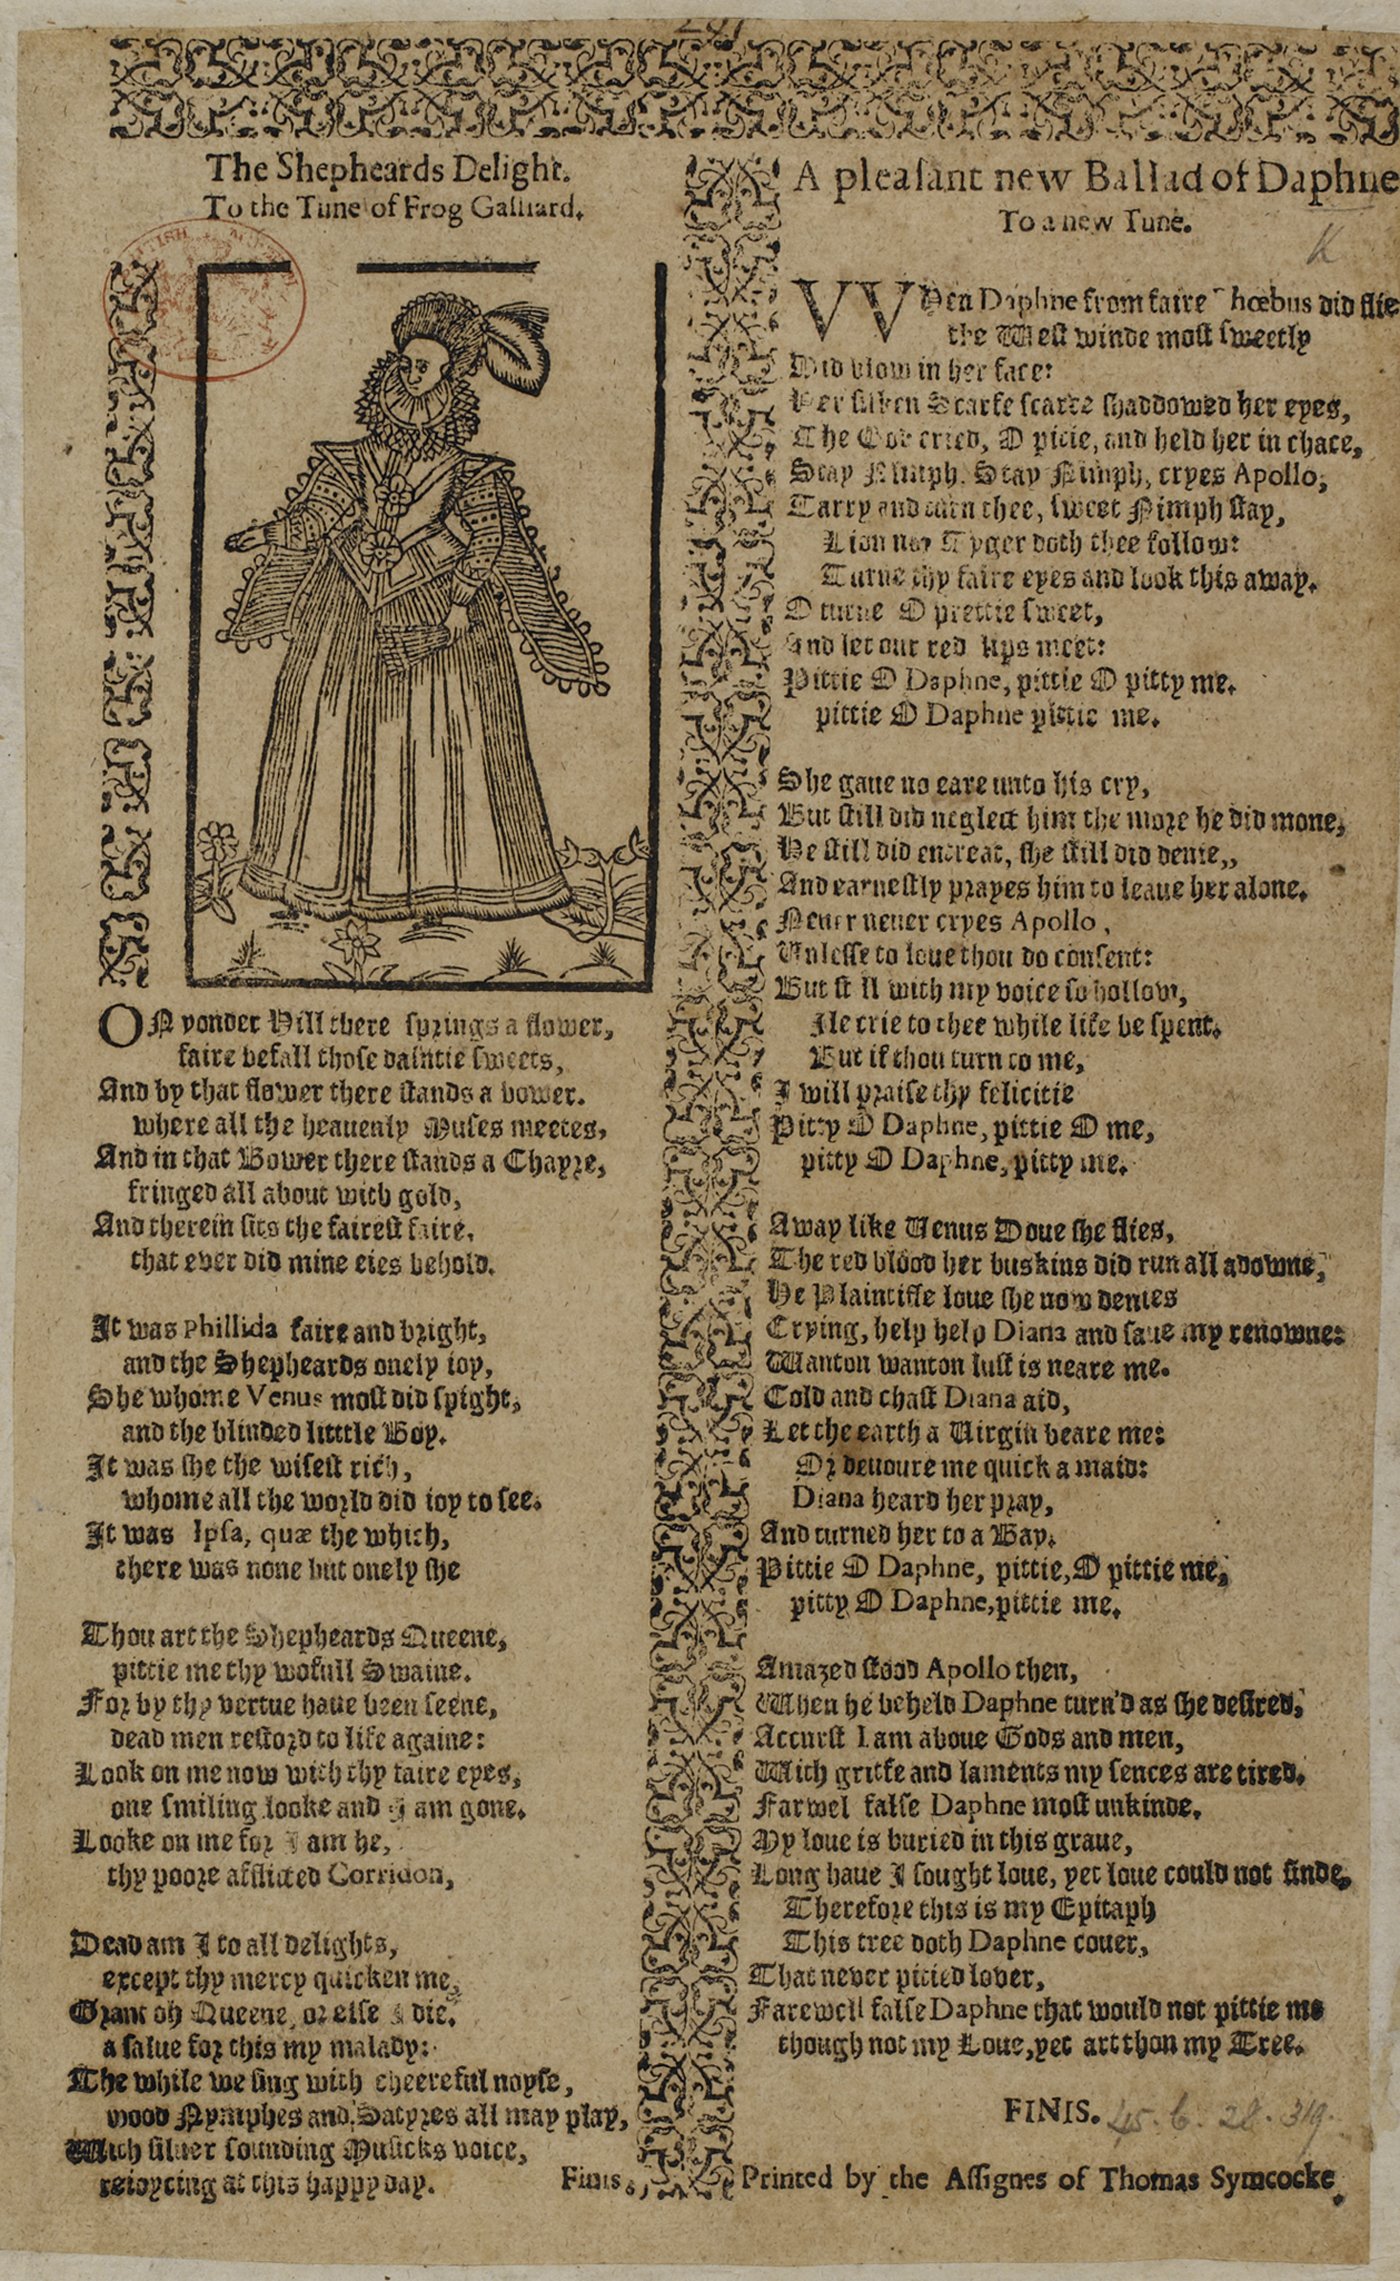 The Shepheards Delight.
To the Tune of Frog Galliard.
ON yonder Hill there springs a flower,
faire befall those daintie sweets,
And by that flower there stands a bower.
where all the heauenly Muses meetes,
And in that Bower there stands a Chayre,
fringed all about with gold,
And therein sits the fairest faire,
that ever did mine eies behold.
It was Phillida faire and bright,
and the Shepheards onely ioy,
She whome Venus most did spight,
and the blinded litttle Boy.
It was she the wisest rich,
whome all the world did ioy to see.
It was Ipsa, quæ the which,
there was none but onely she
Thou art the Shepheards Queene,
pittie me thy wofull Swaine.
For by thy vertue haue been seene,
dead men restord to life againe:
Look on me now with thy faire eyes,
one smiling looke and I am gone.
Looke on me for I am he,
thy poore afflicted Corridon,
Dead am I to all delights,
except thy mercy quicken me,
Grant oh Queene, or else I die.
a salue for this my malady:
The while we sing with cheerefull noyse,
wood Nymphes and Satyres all may play,
With siluer sounding Musicks voice,
reioycing at this happy day.
Finis.
A pleasant new Ballad of Daphne
To a new Tune.
WHen Daphne from faire Phœbus did flie
the West winde most sweetly
Did blow in her face:
Her silken Scarfe scarce shaddowed her eyes,
The God cried, O pitie, and held her in chace,
Stay Nimph, Stay Nimph, cryes Apollo,
Tarry and turn thee, sweet Nimph stay,
Lion nor Tyger doth thee follow:
Turne thy faire eyes and look this away.
O turne O prettie sweet,
And let our red lips meet:
Pittie O Daphne, pittie O pitty me.
pittie O Daphne pittie me.
She gaue no eare unto his cry,
But still did neglect him the more he did mone,
He still did entreat, she still did denie,,
And earnestly prayes him to leaue her alone.
Neuer neuer cryes Apollo,
Unlesse to loue thou do consent:
But still with my voice so hollow,
Ile crie to thee while life be spent.
But if thou turn to me,
I will praise thy felicitie
Pitty O Daphne, pittie O me,
pitty O Daphne, pitty me.
Away like Uenus Doue she flies,
The red blood her buskins did run all adowne,
He Plaintiffe loue she now denies
Crying, help help Diana and saue my renowne:
Wanton wanton lust is neare me.
Cold and chast Diana aid,
Let the earth a Uirgin beare me:
Or deuoure me quick a maid:
Diana heard her pray,
And turned her to a Bay.
Pittie O Daphne, pittie, O pittie me,
pitty O Daphne, pittie me.
Amazed stood Apollo then,
When he beheld Daphne turn'd as she desired,
Accurst I am aboue Gods and men,
With griefe and laments my sences are tired.
Farwel false Daphne most unkinde,
My loue is buried in this graue,
Long haue I sought loue, yet loue could not finde,
Therefore this is my Epitaph
This tree doth Daphne couer,
That never pitied lover,
Farewell false Daphne that would not pittie me
though not my Loue, yet art thou my Tree.
FINIS.
Printed by the Assignes of Thomas Symcocke